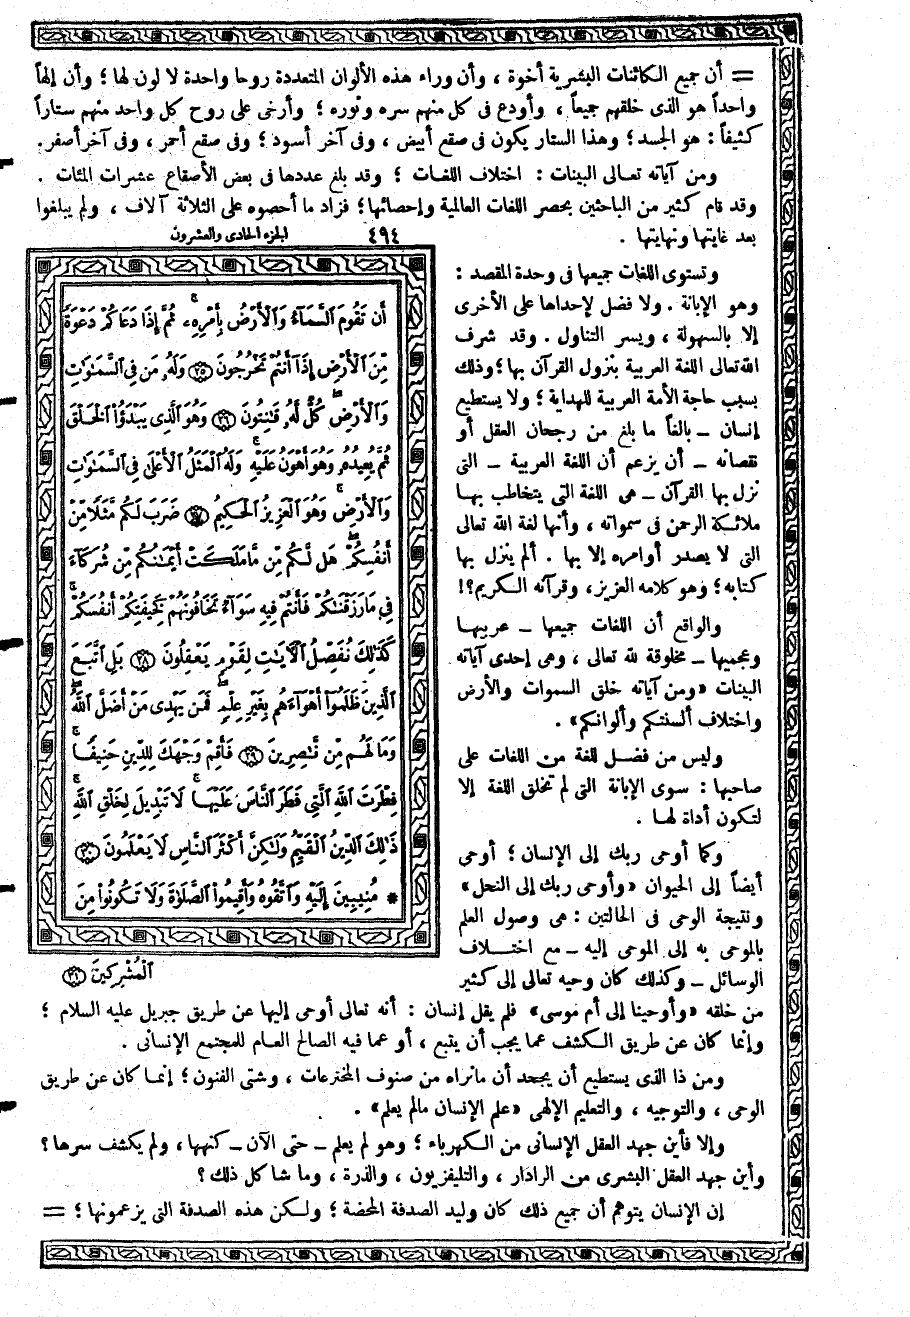 = أن جميع الكائنات البشرية أخوة ، وأن وراء هذه الألوان المتعددة روحا واحدة لا لون لها ؛ وأن إلهاً
واحداً هو الذى خلقهم جميعاً ، وأودع فى كل منهم سره ونوره ؛ وأرخى على روح كل واحد منهم ستاراً
كثيفاً : هو الجسد ؛ وهذا الستار يكون فى صقع أبيض ، وفى آخر أسود ؛ وفى صقع أحمر ، وفى آخر أصفر .
ومن آياته تعالى البينات : اختلاف اللغات ؛ وقد بلغ عددها فى بعض الأصقاع عشرات المئات .
وقد قام كثير من الباحثين بحصر اللغات العالمية وإحصائها ؛ فزاد ما أحصوه على الثلاثة آلاف ، ولم يبلغوا
بعد غايتها ونهايتها .
٤٩٤ الجزء الحادى والعشرون
وتستوى اللغات جميعها فى وحدة المقصد :
وهو الإبانة . ولا فضل لإحداها على الأخرى
إلا بالسهولة ، ويسر التناول . وقد شرف
الله تعالى اللغة العربية بنزول القرآن بها ؛ وذلك
بسبب حاجة الأمة العربية للهداية ؛ ولا يستطيع
إنسان – بالغاً ما بلغ من رجحان العقل أو
نقصانه – أن يزعم أن اللغة العربية – التى
نزل بها القرآن – هى اللغة التى يتخاطب بها
ملائكة الرحمن فى سمواته ، وأنها لغة الله تعالى
التى لا يصدر أوامره إلا بها . ألم ينزل بها
كتابه ؛ وهو كلامه العزيز ، وقرآنه الكريم ؟!
والواقع أن اللغات جميعها – عربيها
وعجميها – مخلوقة لله تعالى ، وهى إحدى آياته
البينات «ومن آياته خلق السموات والأرض
واختلاف ألسنتكم وألوانكم» .
وليس من فضل للغة من اللغات على
صاحبها : سوى الإبانة التى لم تخلق اللغة إلا
لتكون أداة لها .
وكما أوحى ربك إلى الإنسان ؛ أوحى
أيضاً إلى الحيوان «وأوحى ربك إلى النحل»
ونتيجة الوحى فى الحالتين : هى وصول العلم
بالموحى به إلى الموحى إليه – مع اختلاف
الوسائل – وكذلك كان وحيه تعالى إلى كثير
أَن تَقُومَ ٱلسَّمَآءُ وَٱلْأَرْضُ بِأَمْرِهِۦۚ ثُمَّ إِذَا دَعَاكُمْ دَعْوَةً
مِّنَ ٱلْأَرْضِ إِذَآ أَنتُمْ تَخْرُجُونَ ﴿٢٥﴾ وَلَهُۥ مَن فِى ٱلسَّمَٰوَٰتِ
وَٱلْأَرْضِۖ كُلٌّ لَّهُۥ قَٰنِتُونَ ﴿٢٦﴾ وَهُوَ ٱلَّذِى يَبْدَؤُا۟ ٱلْخَلْقَ
ثُمَّ يُعِيدُهُۥ وَهُوَ أَهْوَنُ عَلَيْهِۚ وَلَهُ ٱلْمَثَلُ ٱلْأَعْلَىٰ فِى ٱلسَّمَٰوَٰتِ
وَٱلْأَرْضِۚ وَهُوَ ٱلْعَزِيزُ ٱلْحَكِيمُ ﴿٢٧﴾ ضَرَبَ لَكُم مَّثَلًا مِّنْ
أَنفُسِكُمْۖ هَل لَّكُم مِّن مَّا مَلَكَتْ أَيْمَٰنُكُم مِّن شُرَكَآءَ
فِى مَا رَزَقْنَٰكُمْ فَأَنتُمْ فِيهِ سَوَآءٌ تَخَافُونَهُمْ كَخِيفَتِكُمْ أَنفُسَكُمْۚ
كَذَٰلِكَ نُفَصِّلُ ٱلْءَايَٰتِ لِقَوْمٍ يَعْقِلُونَ ﴿٢٨﴾ بَلِ ٱتَّبَعَ
ٱلَّذِينَ ظَلَمُوٓا۟ أَهْوَآءَهُم بِغَيْرِ عِلْمٍۖ فَمَن يَهْدِى مَنْ أَضَلَّ ٱللَّهُۖ
وَمَا لَهُم مِّن نَّٰصِرِينَ ﴿٢٩﴾ فَأَقِمْ وَجْهَكَ لِلدِّينِ حَنِيفًاۚ
فِطْرَتَ ٱللَّهِ ٱلَّتِى فَطَرَ ٱلنَّاسَ عَلَيْهَاۚ لَا تَبْدِيلَ لِخَلْقِ ٱللَّهِۚ
ذَٰلِكَ ٱلدِّينُ ٱلْقَيِّمُ وَلَٰكِنَّ أَكْثَرَ ٱلنَّاسِ لَا يَعْلَمُونَ ﴿٣٠﴾
* مُنِيبِينَ إِلَيْهِ وَٱتَّقُوهُ وَأَقِيمُوا۟ ٱلصَّلَوٰةَ وَلَا تَكُونُوا۟ مِنَ
ٱلْمُشْرِكِينَ ﴿٣١﴾
من خلقه «وأوحينا إلى أم موسى» فلم يقل إنسان : أنه تعالى أوحى إليها عن طريق جبريل عليه السلام ؛
وإنما كان عن طريق الكشف عما يجب أن يتبع ، أو عما فيه الصالح العام للمجتمع الإنسانى .
ومن ذا الذى يستطيع أن يجحد أن ما نراه من صنوف المخترعات ، وشتى الفنون ؛ إنما كان عن طريق
الوحى ، والتوجيه ، والتعليم الإلهى «علم الإنسان مالم يعلم» .
وإلا فأين جهد العقل الإنسانى من الكهرباء ؛ وهو لم يعلم – حتى الآن – كنهها ، ولم يكشف سرها ؟
وأين جهد العقل البشرى من الرادار ، والتليفزيون ، والذرة ، وما شاكل ذلك ؟
إن الإنسان يتوهم أن جميع ذلك كان وليد الصدفة المحضة ؛ ولكن هذه الصدفة التى يزعمونها ؛ =